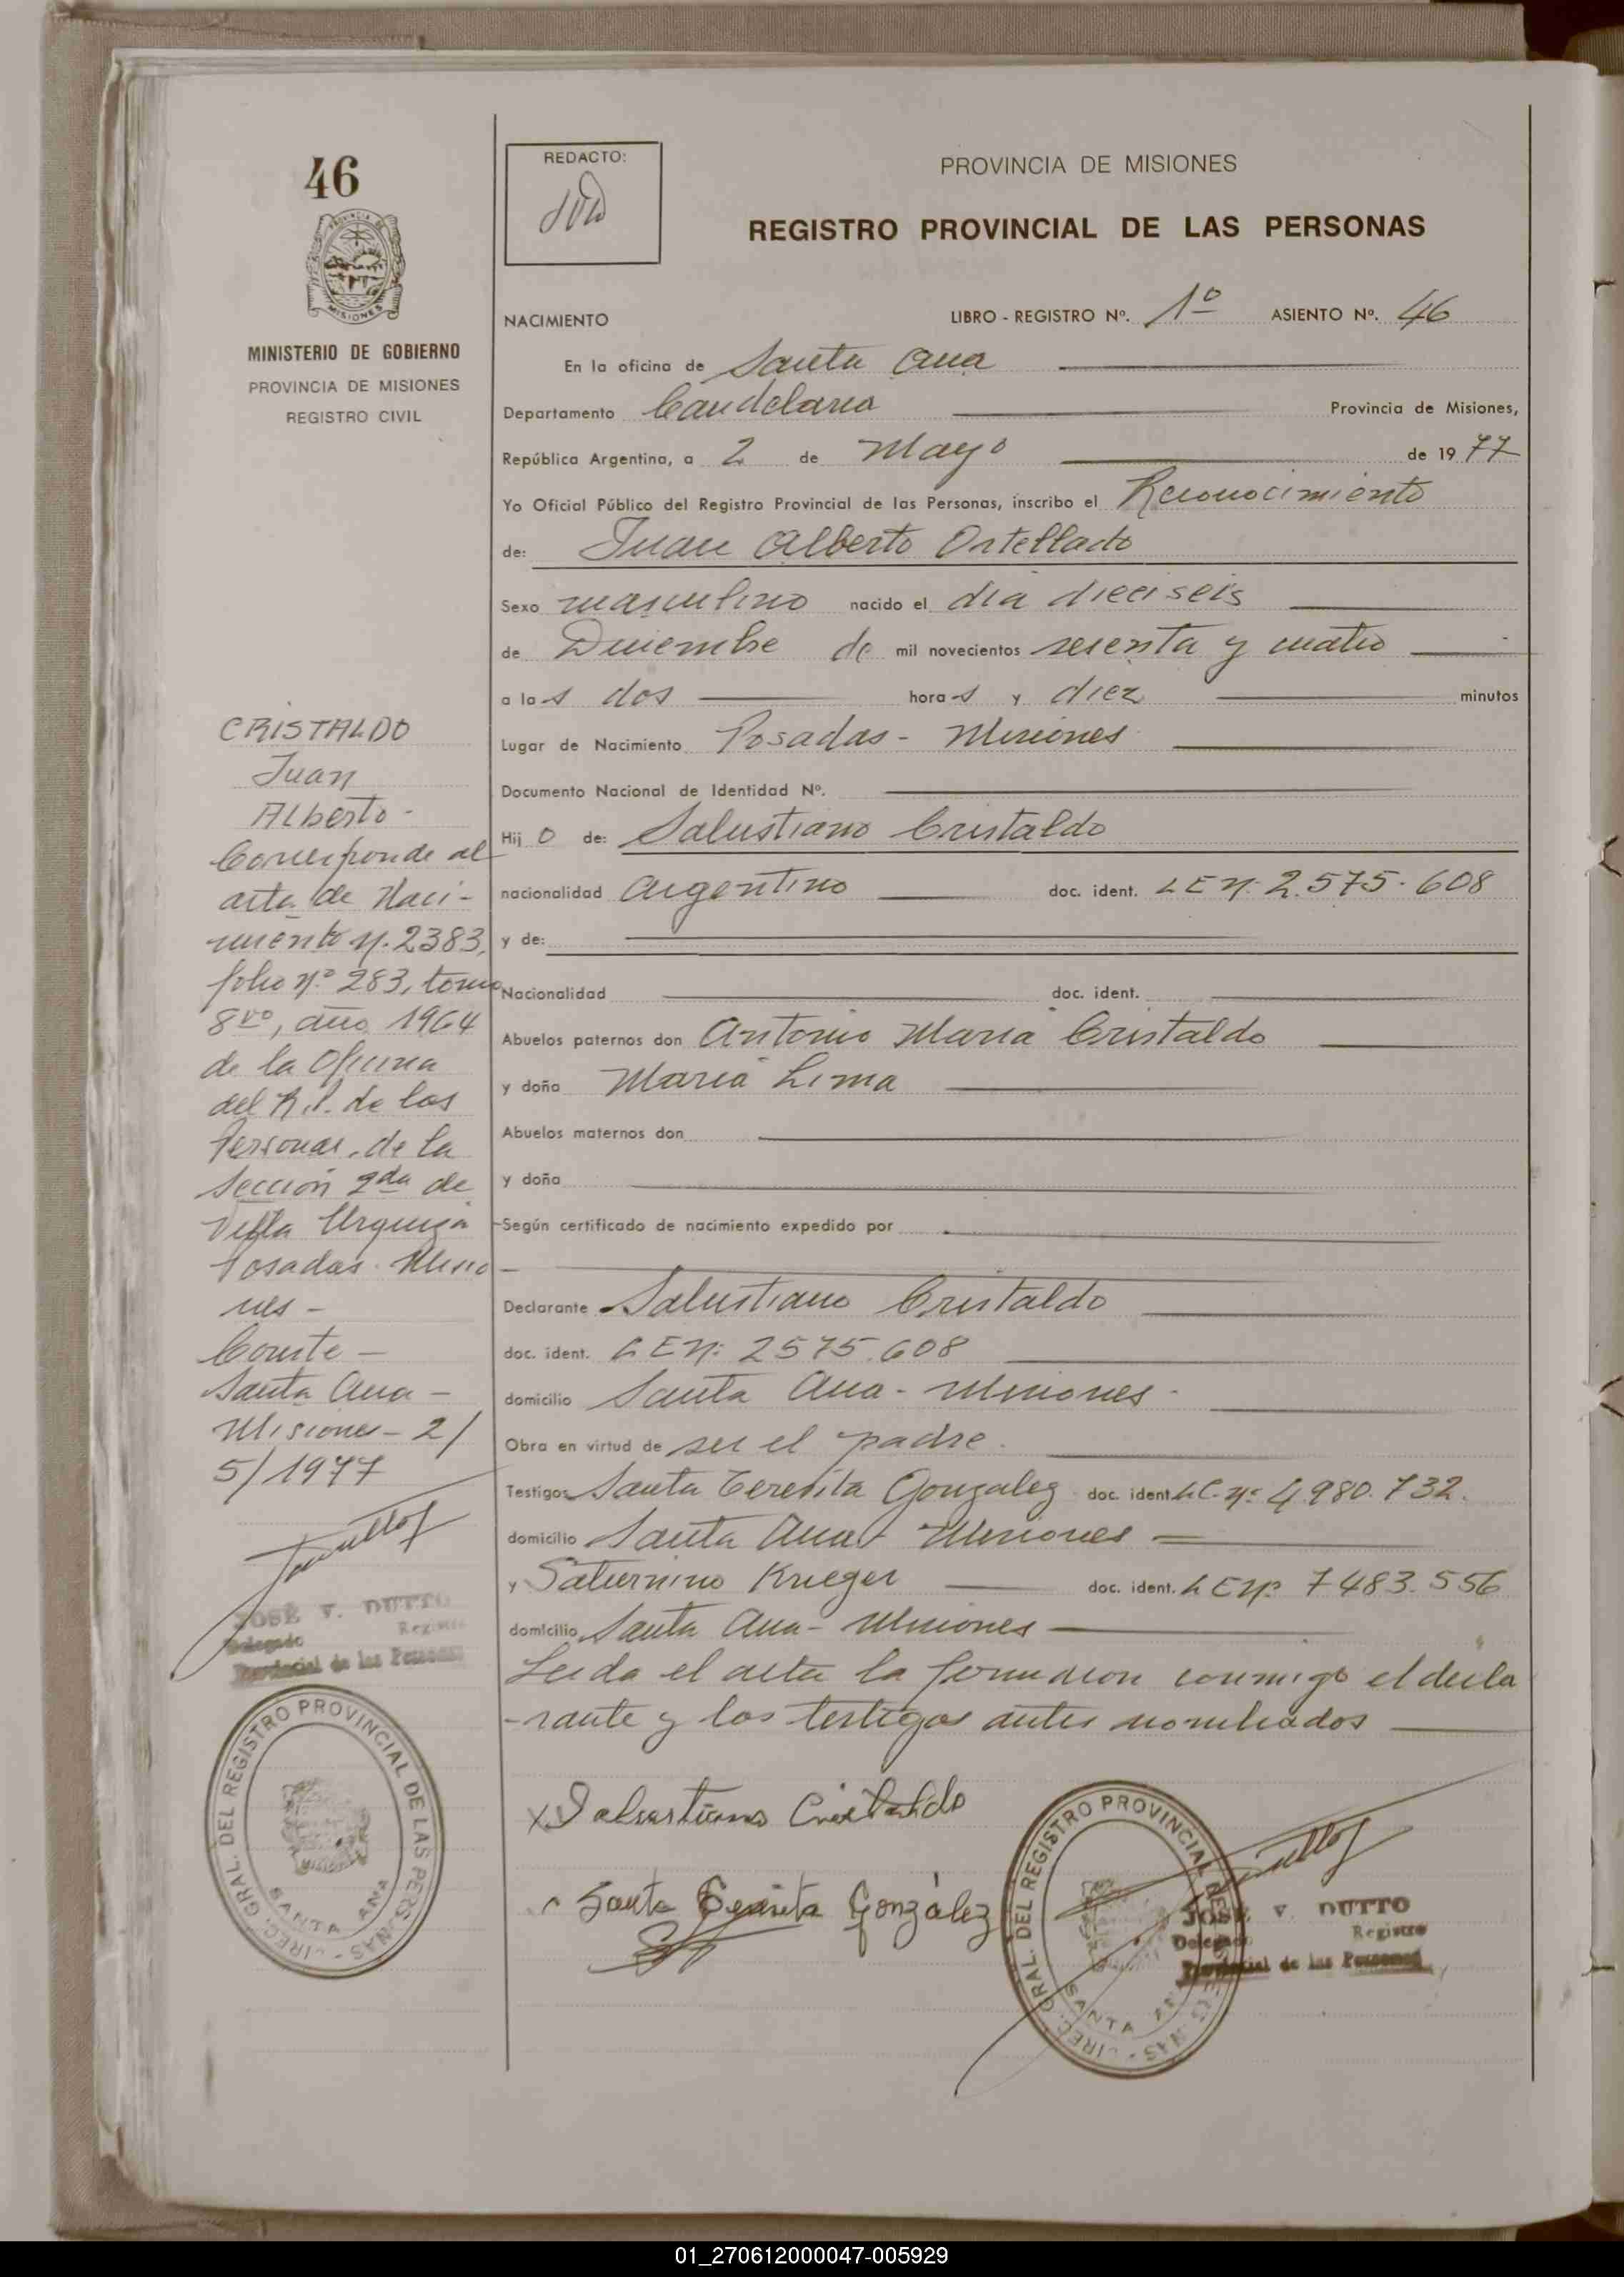 46
PROVINCIA DE
MISIONES
MINISTERIO DE GOBIERNO
PROVINCIA DE MISIONES
REGISTRO CIVIL
REDACTO:
PROVINCIA DE MISIONES
REGISTRO PROVINCIAL DE LAS PERSONAS
NACIMIENTO LIBRO - REGISTRO Nº. 1º ASIENTO Nº. 46
En la oficina de Santa Ana
Departamento Candelaria Provincia de Misiones,
República Argentina, a 2 de Mayo de 1977
Yo Oficial Público del Registro Provincial de las Personas, inscribo el Reconocimiento
de: Juan Alberto Ortellado
Sexo masculino nacido el día dieciseis
de Diciembre de mil novecientos sesenta y cuatro
a las dos horas y diez minutos
Lugar de Nacimiento Posadas - Misiones
Documento Nacional de Identidad Nº.
Hijo de: Salustiano Cristaldo
nacionalidad Argentino doc. ident. LE Nº 2.575.608
y de:
Nacionalidad doc. ident.
Abuelos paternos don Antonio María Cristaldo
y doña María Lima
Abuelos maternos don
y doña
Según certificado de nacimiento expedido por
Declarante Salustiano Cristaldo
doc. ident. LE Nº 2575.608
domicilio Santa Ana - Misiones -
Obra en virtud de ser el padre.
Testigos Santa Teresita Gonzalez doc. ident. LC. Nº 4.980.732.
domicilio Santa Ana - Misiones
y Saturnino Krieger doc. ident. LE Nº 7483.556
domicilio Santa Ana - Misiones
Leida el acta la firmaron conmigo el decla
-rante y los testigos antes nombrados
X Salustiano Cristaldo
Santa Teresita González
JOSÉ V. DUTTO
Delegado Registro
Provincial de las Personas
DIREC. GRAL. DEL REGISTRO PROVINCIAL DE LAS PERSONAS
SANTA ANA
CRISTALDO
Juan
Alberto -
Corresponde al
acta de Naci-
miento Nº 2383,
folio Nº 283, tomo
8vo, año 1964
de la Oficina
del R.P. de las
Personas, de la
Sección 2da de
Villa Urquiza
Posadas - Misio
nes -
Conste -
Santa Ana -
Misiones - 2/
5/1977
JOSÉ V. DUTTO
Delegado Registro
Provincial de las Personas
DIREC. GRAL. DEL REGISTRO PROVINCIAL DE LAS PERSONAS
SANTA ANA
01_270612000047-005929